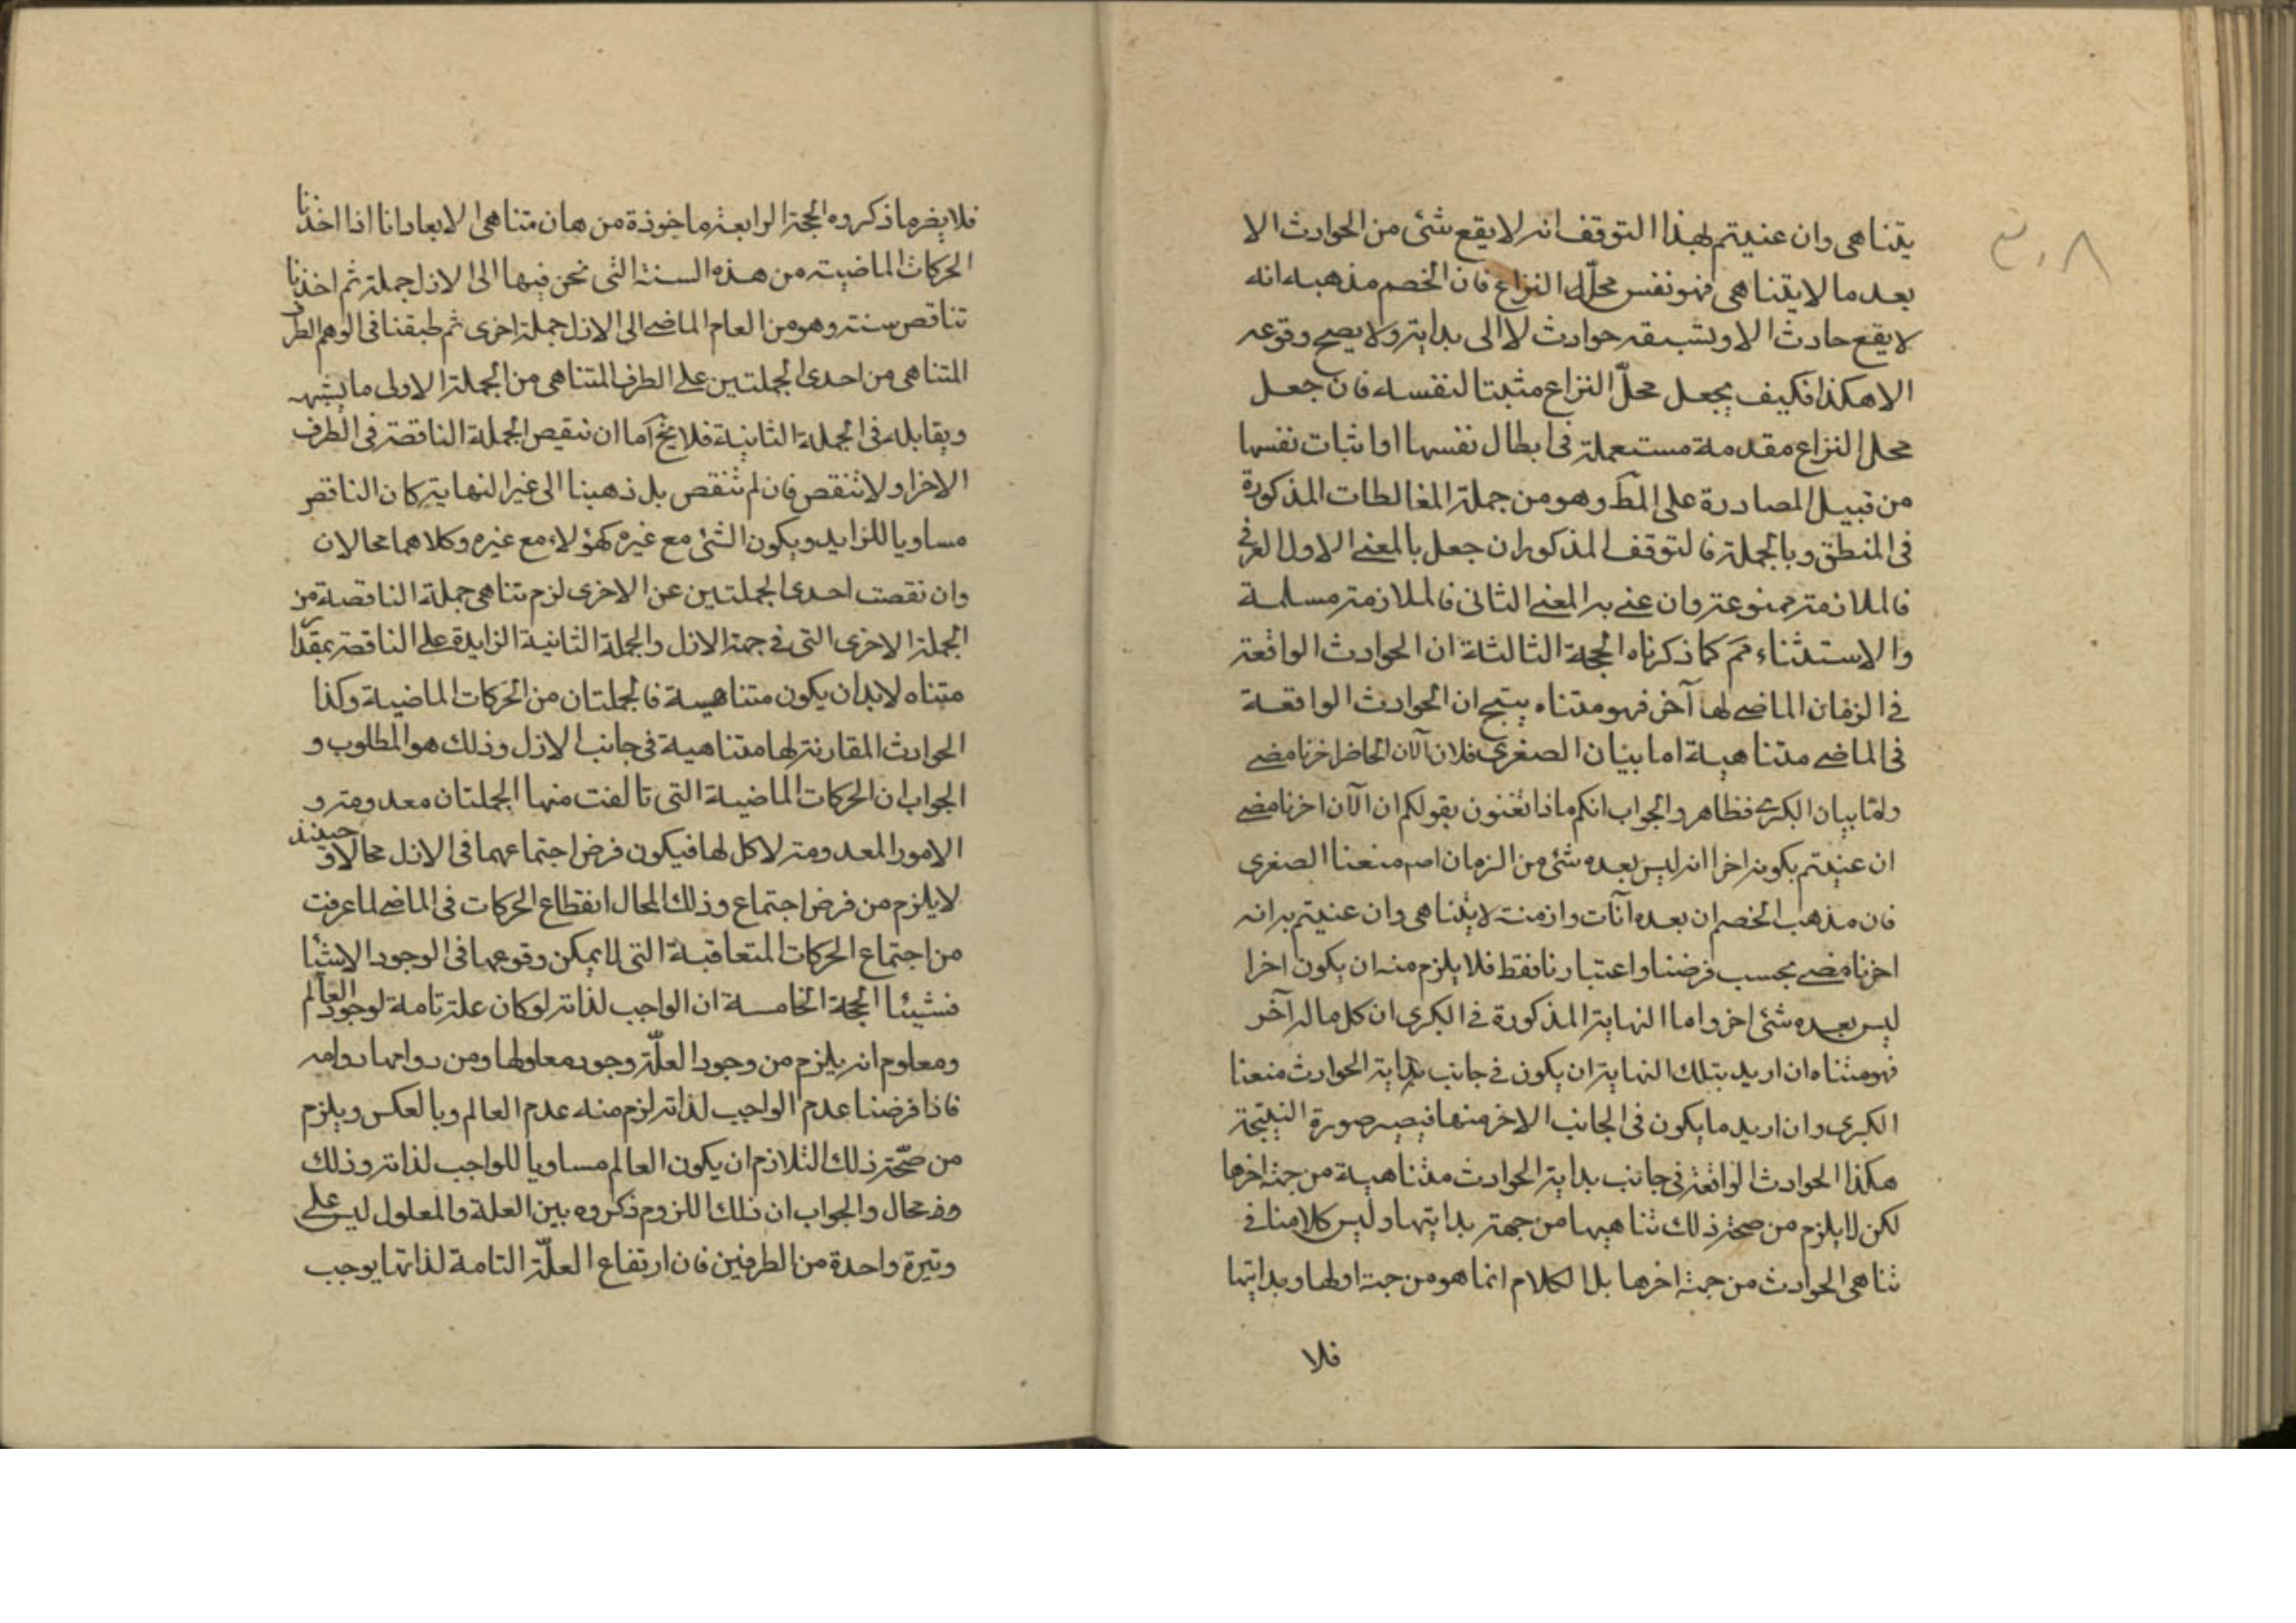 ٣٠٨
يتناهى وان عنيتم بهذا التوقف انه لا يقع شئ من الحوادث الا
بعد ما لا يتناهى فهو نفس محلّ النزاع فان الخصم مذهبه انه
لا يقع حادث الا ويسبقه حوادث لا الى بداية ولا يصح وقوعه
الا هكذا فكيف يجعل محلّ النزاع مثبتا لنفسه فان جعل
محل النزاع مقدمة مستعملة فى ابطال نفسها او اثبات نفسها
من قبيل المصادرة على المط وهو من جملة المغالطات المذكورة
فى المنطق وبالجملة فالتوقف المذكور ان جعل بالمعنى الاول العرفى
فالملازمة ممنوعة وان عنى به المعنى الثانى فالملازمة مسلمة
والاستثناء مم كما ذكرناه الحجة الثالثة ان الحوادث الواقعة
فى الزمان الماضى لها آخر فهو متناه ينتج ان الحوادث الواقعة
فى الماضى متناهية اما بيان الصغرى فلان الآن الحاضر اخر ما مضى
واما بيان الكبرى فظاهر والجواب انكم ماذا تعنون بقولكم ان الآن اخر ما مضى
ان عنيتم بكونه اخرا انه ليس بعده شئ من الزمان اصم منعنا الصغرى
فان مذهب الخصم ان بعده آنات وازمنة لا يتناهى وان عنيتم به انه
اخر ما مضى بحسب فرضنا واعتبارنا فقط فلا يلزم منه ان يكون اخرا
ليس بعده شئ اخر واما النهاية المذكورة فى الكبرى ان كل ما له آخر
فهو متناه ان اريد بتلك النهاية ان يكون فى جانب بداية الحوادث منعنا
الكبرى وان اريد ما يكون فى الجانب الاخر منها فيصير صورة النتيجة
هكذا الحوادث الواقعة فى جانب بداية الحوادث متناهية من جهة اخرها
لكن لا يلزم من صحة ذلك تناهيها من جهة بدايتها وليس كلامنا فى
تناهى الحوادث من جهة اخرها بل الكلام انما هو من جهة اولها وبدايتها
فلا
فلا يضر ما ذكروه الحجة الرابعة ماخوذة من هان متناهى الابعاد انا اذا اخذنا
الحركات الماضية من هذه السنة التى نحن فيها الى الازل جملة ثم اخذنا
تناقص سنة وهو من العام الماضى الى الازل جملة اخرى ثم طبقنا فى الوهم الطرف
المتناهى من احدى الجملتين على الطرف المتناهى من الجملة الاولى ما يشبهه
ويقابله فى الجملة الثانية فلا يخ اما ان تنقيص الجملة الناقصة فى الطرف
الاخر او لا تنقص فان لم تنقص بل ذهبنا الى غير النهاية كان الناقص
مساويا للزايد ويكون الشئ مع غيره كهؤلاء مع غيره وكلاهما محالان
وان نقصت احدى الجملتين عن الاخرى لزم تناهى جملة الناقصة من
الجملة الاخرى التى فى جهة الازل والجملة الثانية الزايدة على الناقصة بمقدار
متناه لا بد ان يكون متناهيسة فالجملتان من الحركات الماضية وكذا
الحوادث المقارنة لها متناهية فى جانب الازل وذلك هو المطلوب و
الجواب ان الحركات الماضية التى تالفت منها الجملتان معدومة و
الامور المعدومة لا كل لها فيكون فرض اجتماعهما فى الازل محالا و حينئذ
لا يلزم من فرض اجتماع وذلك المحال انقطاع الحركات فى الماضى لما عرفت
من اجتماع الحركات المتعاقبة التى لا يمكن وقوعها فى الوجود الا شيئا
فشيئا الحجة الخامسة ان الواجب لذاته لو كان علة تامة لوجود العالم
ومعلوم انه يلزم من وجود العلّة وجود معلولها ومن دوامها دوامه
فاذا فرضنا عدم الواجب لذاته لزم منه عدم العالم وبالعكس ويلزم
من صحّة ذلك التلازم ان يكون العالم مساويا للواجب لذاته وذلك
وف محال والجواب ان ذلك اللزوم ذكروه بين العلة والمعلول ليس على
وتيرة واحدة من الطرفين فان ارتفاع العلّة التامة لذاتها يوجب